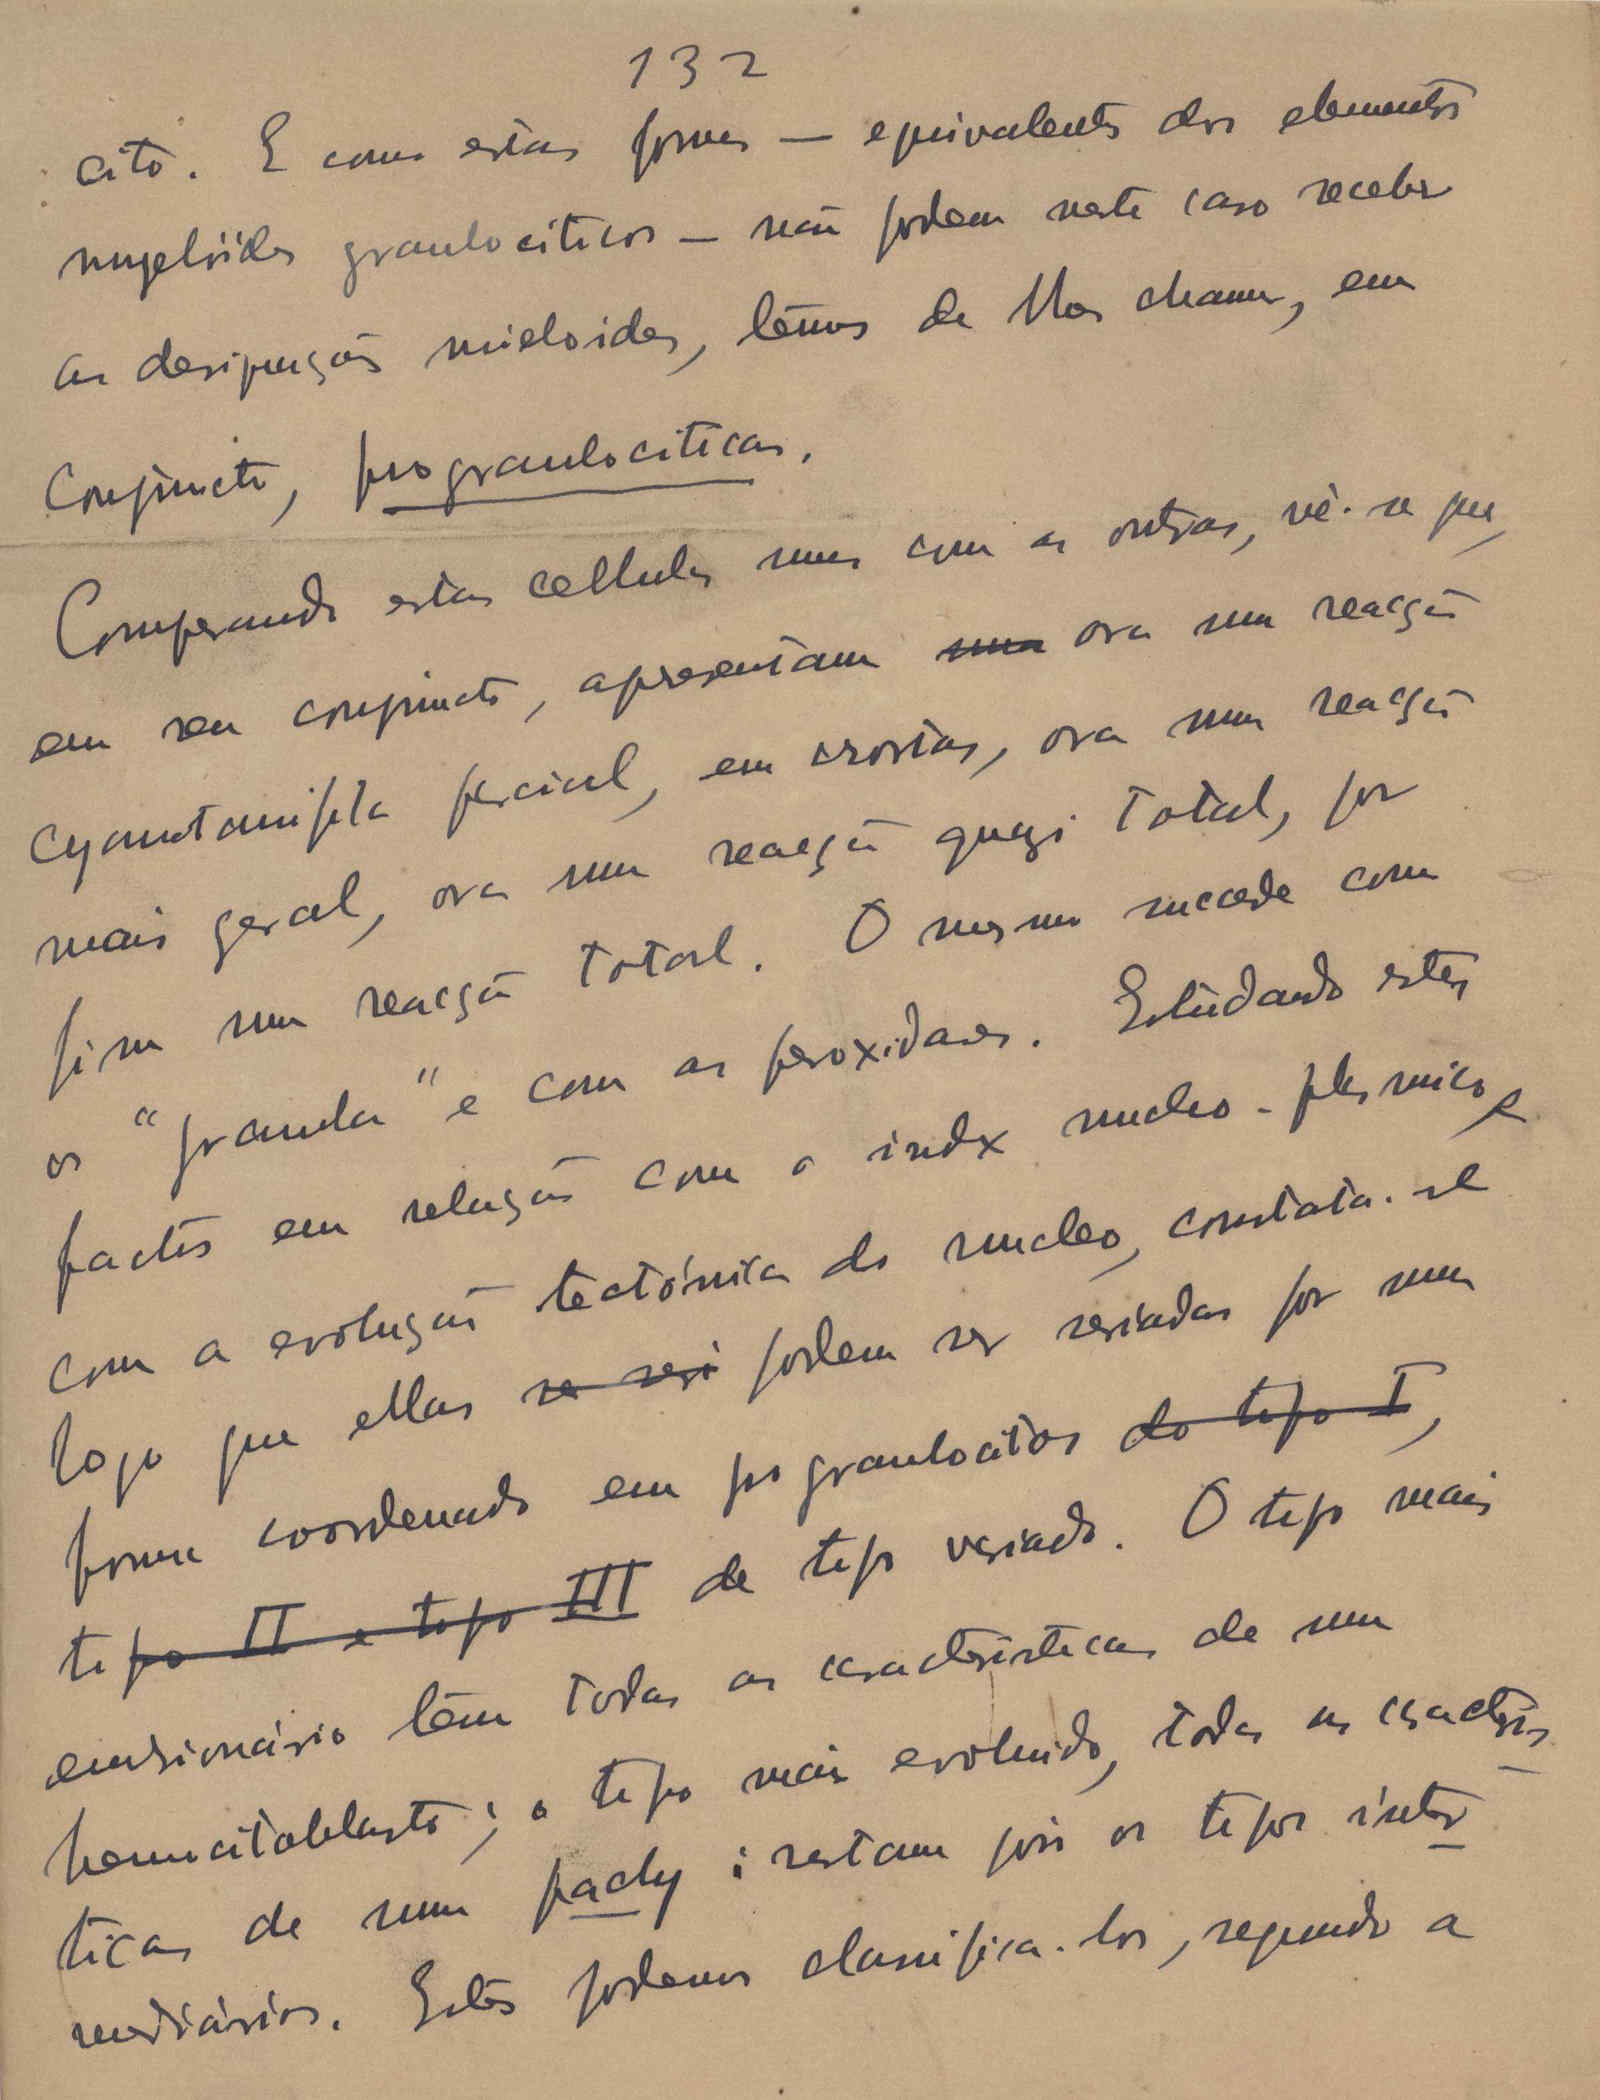 132
cito. E como estas formas — equivalentes dos elementos
myelóides granulociticos — não podem neste caso receber
as designações mieloides, temos de lhas chamar, em
conjuncto, progranulociticas.
Comparando estas cellulas umas com as outras, vê-se que,
em seu conjuncto, apresentam uma ora uma reacção
parcial, em crostas, ora uma reacção
mais geral, ora uma reacção quasi total, por
fim uma reacção total. O mesmo succede com
os "granula" e com as peroxidases. Estudando estes
factos em relação com o index nucleo-plasmico e
com a evolução tectónica do nucleo, constata-se
logo que ellas se seri podem ser seriadas por uma
forma coordenada em progranulocitos do tipo I,
tipo II e tipo III de tipo variado. O tipo mais
embrionário têm todas as caracteristicas de um
hemocitoblasto; o tipo mais evoluido, todas as caracteris
ticas de um pachy; restam pois os tipos inter
mediários. Estes podemos classifica-los, segundo a